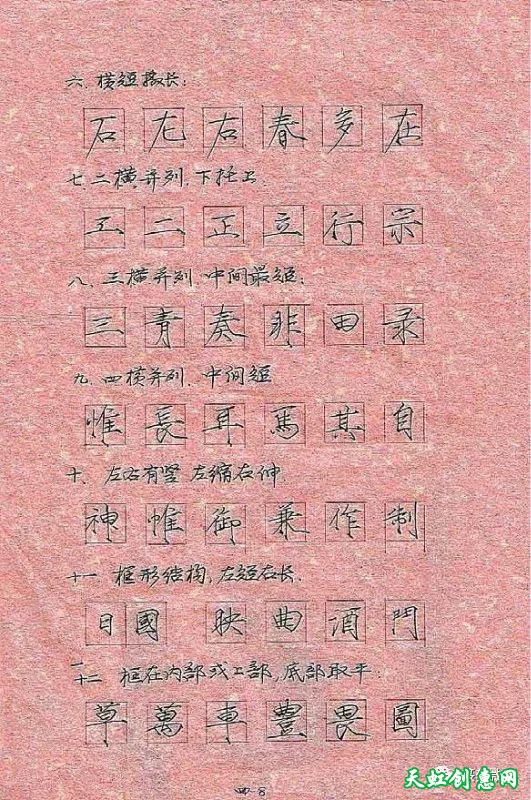 六、横短撇长：
石 尤 右 春 多 在
七 二横并列、下托上
工 二 正 立 行 宗
八、三横并列 中间最短：
三 青 奏 非 田 录
九、四横并列、中间短
惟 長 耳 馬 其 自
十、左右有竖 左缩右伸
神 帷 御 兼 作 制
十一 框形结构，左短右长、
日 國 映 曲 酒 門
十二 框在内部或上部，底部取平：
草 萬 車 豐 畏 圖
四-8
天虹创意网